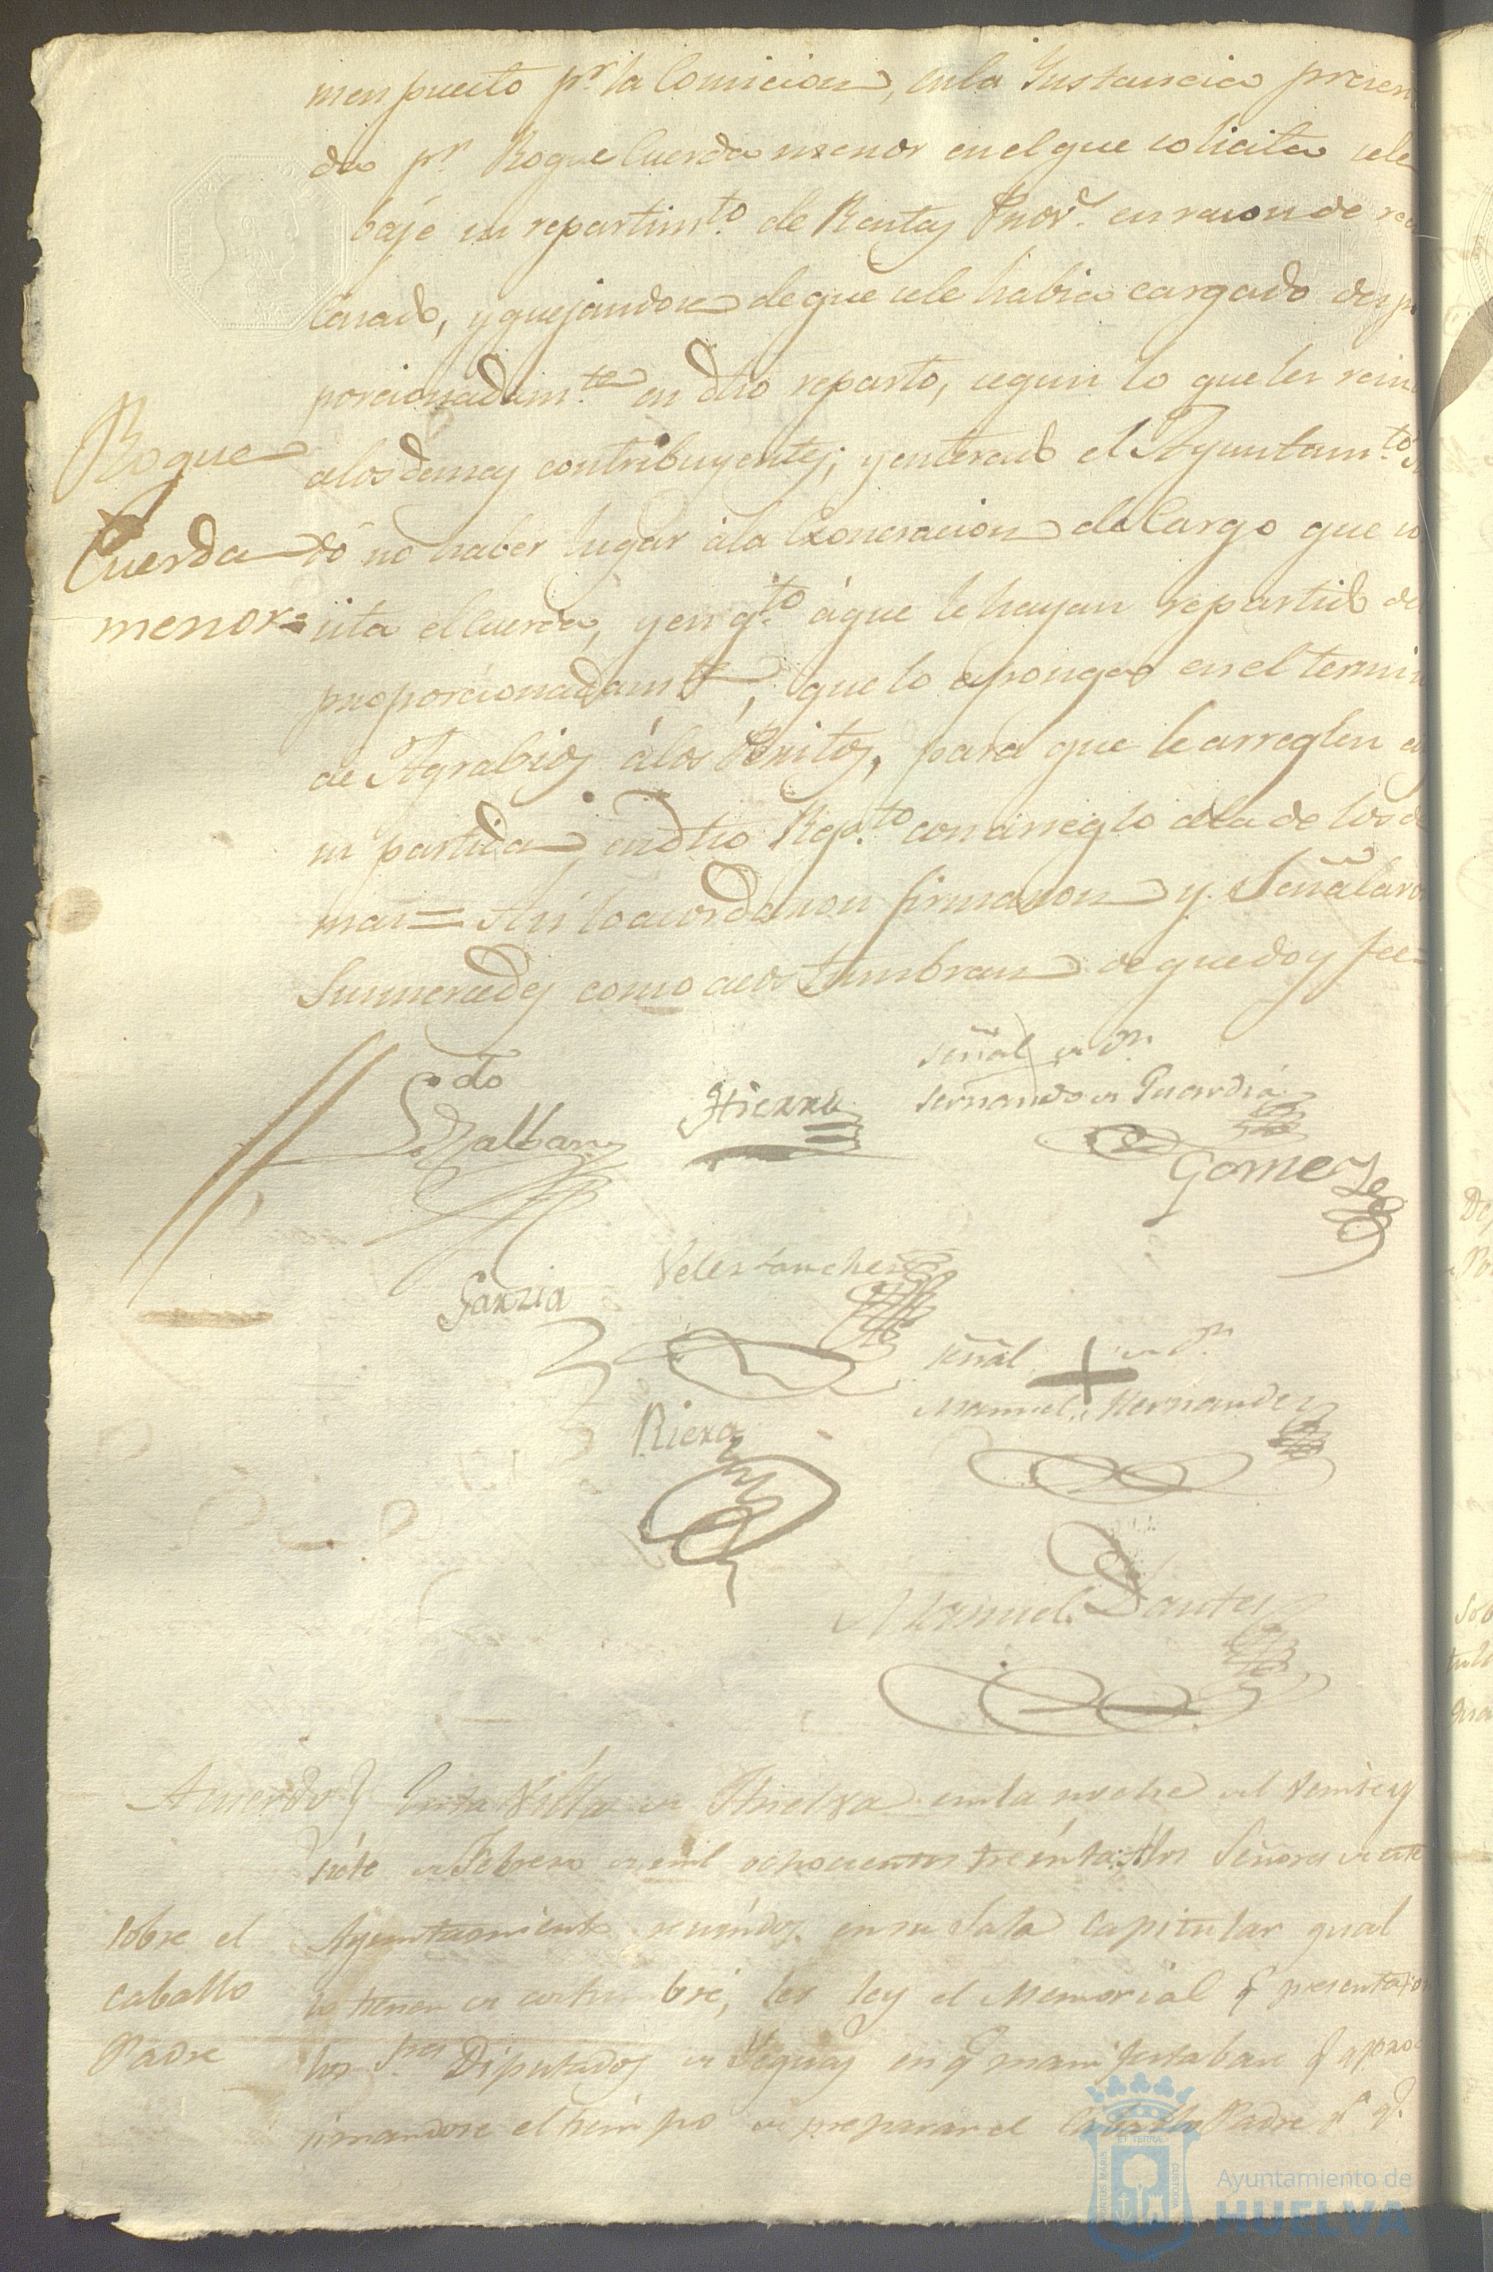 men puesto pr. la Comicion, en la Instancia presen
da pr. Roque Cuerda menor en el que solicita se le
baje su repartimto. de Rentas Prov.s en racon de
Casado, y quejandose de que se le habia cargado despro
porcionadamte. en dho reparto, segun lo que les
Roque
a los demas contribuyentes; y enterado el Ayuntamto.
Cuerda
dó no haber lugar á la Exoneracion del Cargo que so
menor=
sita el Cuerda, y en qto. á que le hayan repartido des
proporcionadamte., que lo esponga en el termino
de Agrabios á los Peritos, para que le arreglen
su partida en dho Repto. con arreglo a la de los de
mas= Asi lo acordaron firmaron y Señalaron
Sus mercedes como acostumbran de que doy fee=
Ldo
Señal de Dn.
Hierro
Fernando de Guardia
Gomez
Velez Sanchez
Garzia
Señal + de Dn.
Manuel Hernandez
Riera
Manuel Dantes
Acuerdo} En la Villa de Huelva en la noche del veinte y
siete de Febrero de mil ochocientos treinta: los Señores de este
sobre el
Ayuntamiento reunidos en su Sala Capitular qual
caballo
lo tienen de costumbre, les ley el Memorial q presentaron
Padre
los Sres Diputados de Yeguas en q manifestaban q aproc
simandose el tiempo de preparar el Caballo Padre pa. q.
VIRTUS MARIS
ET TERRA
CUSTODIA
Ayuntamiento de
HUELVA